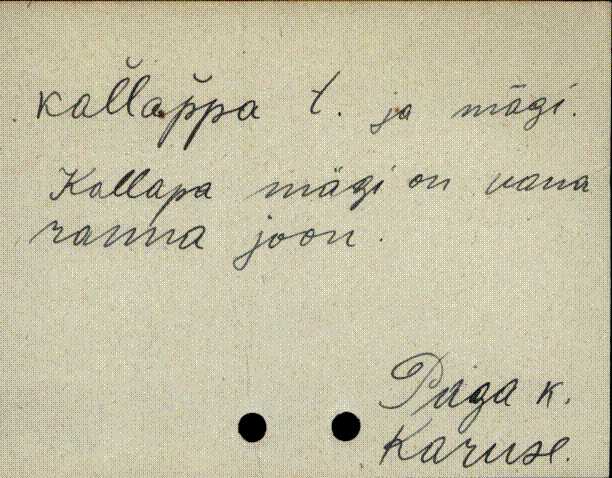 kal̆lap̆pa t. ja mägi.
Kallapa mägi on vana
ranna joon.
Paga k.
Karuse.